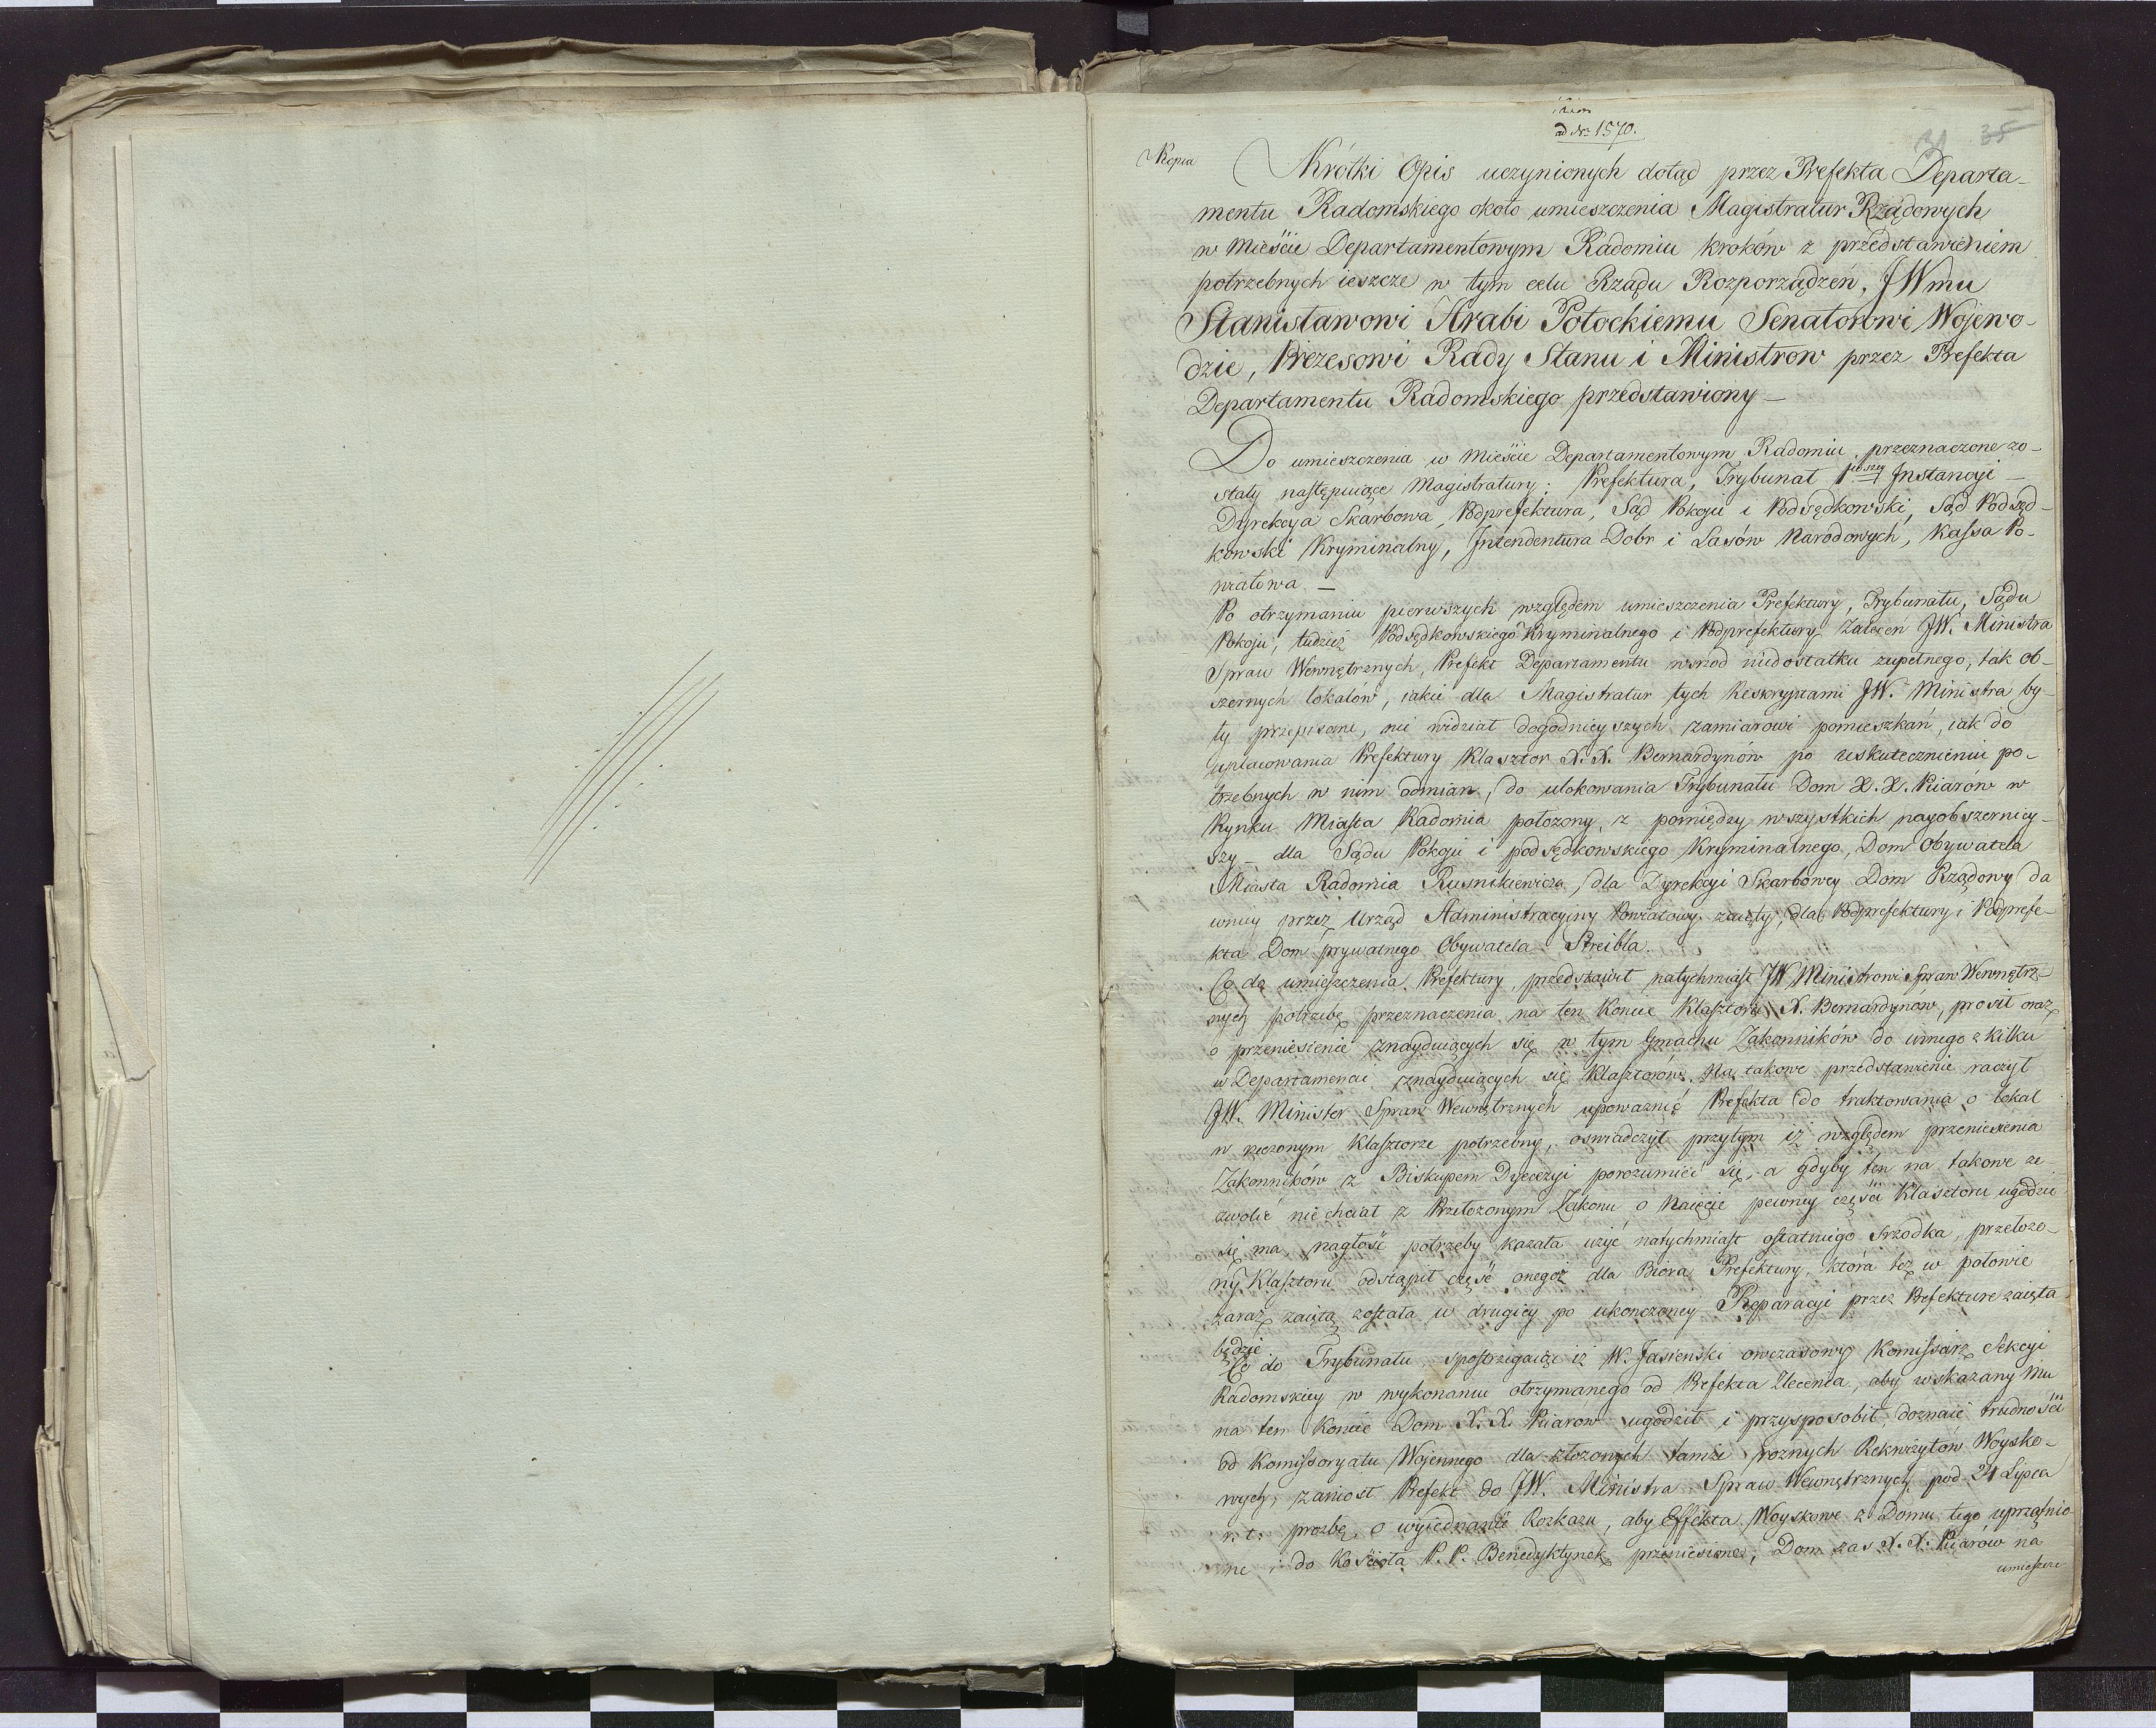 ad Nr 1570.
31 35
Kopia
Krótki Opis uczynionych dotąd przez Prefekta Departa-
mentu Radomskiego około umieszczenia Magistratur Rządowych
w Mieście Departamentowym Radomiu kroków z przedstawieniem
potrzebnych ieszcze w tym celu Rządu Rozporządzeń, JWmu
Stanisławowi Hrabi Potockiemu Senatorowi Wojewo-
dzie, Prezesowi Rady Stanu i Ministrow przez Prefekta
Departamentu Radomskiego przedstawiony —
Do umieszczenia w Mieście Departamentowym Radomiu przeznaczone zo-
stały następuiące Magistratury: Prefektura, Trybunał 1wszey Instancyi —
Dyrekcya Skarbowa, Podprefektura, Sąd Pokoju i Podsędkowski, Sąd Podsęd-
kowski Kryminalny, Intendentura Dobr i Lasów Narodowych, Kassa Po-
wiatowa. —
Po otrzymaniu pierwszych względem umieszczenia Prefektury, Trybunału, Sądu
Pokoju, tudzież Podsędkowskiego Kryminalnego i Podprefektury Zaleceń JW. Ministra
Spraw Wewnętrznych, Prefekt Departamentu wsrod niedostatku zupełnego, tak ob-
szernych lokalów, iakie dla Magistratur tych Reskryptami JW. Ministra by-
ły przepisane, nie widział dogodnieyszych zamiarowi pomieszkań, iak do
uplacowania Prefektury Klasztor X.X. Bernardynów po uskutecznieniu po-
trzebnych w nim odmian, do ulokowania Trybunału Dom X.X. Piiarów w
Rynku Miasta Radomia położony, z pomiędzy wszystkich nayobszerniey-
szy — dla Sądu Pokoju i podsędkowskiego Kryminalnego, Dom Obywatela
Miasta Radomia Rusnikiewicza, dla Dyrekcyi Skarbowey Dom Rządowy da
wniey przez Urząd Administracyiny Powiatowy zaięty, dla Podprefektury i Podprefe-
kta Dom prywatnego Obywatela Streibla.
Co do umieszczenia Prefektury, przedstawił natychmiast JW Ministrowi Spraw Wewnętrz-
nych potrzebę przeznaczenia na ten koniec Klasztoru X. Bernardynów, prosił oraz
o przeniesienie znayduiących się w tym Gmachu Zakonników do innego z kilku
w Departamencie znayduiących się Klasztorów. Na takowe przedstawienie raczył
JW. Minister Spraw Wewnętrznych upoważnić Prefekta do traktowania o lokal
w rzeczonym Klasztorze potrzebny, oswiadczył przytym iż względem przeniesienia
Zakonników z Biskupem Dyecezyi porozumieć się, a gdyby ten na takowe ze
zwolić nie chciał z Przełozonym Zakonu o Naięcie pewney części Klasztoru ugodzić
się ma, nagłość potrzeby kazała użyć natychmiast ostatniego Srzodka, przełożo-
ny Klasztoru odstąpił część onegoż dla Biora Prefektury, która też w połowie
zaraz zaiętą została w drugiey po ukończoney Reparacyi przez Prefekturę zaięta
będzie
Co do Trybunału, spostrzegaiąc iż W. Jasienski owczasowy Komissarz Sekcyi
Radomskiey w wykonaniu otrzymanego od Prefekta Zlecenia, aby wskazany mu
na ten koniec Dom X.X. Piiarów ugodził i przysposobił, doznaie trudności
od Komissoryatu Wojennego dla złożonych tamże roznych Rekwizytów Woysko-
wych, zaniosł Prefekt do JW. Ministra Spraw Wewnętrznych pod 24 Lypca
r.t. prozbę, o wyiednanie Rozkazu, aby Effekta Woyskowe z Domu tego uprzątnio-
ne i do Kościoła P.P. Benedyktynek przeniesione, Dom zas X.X. Piiarów na
umieszcze